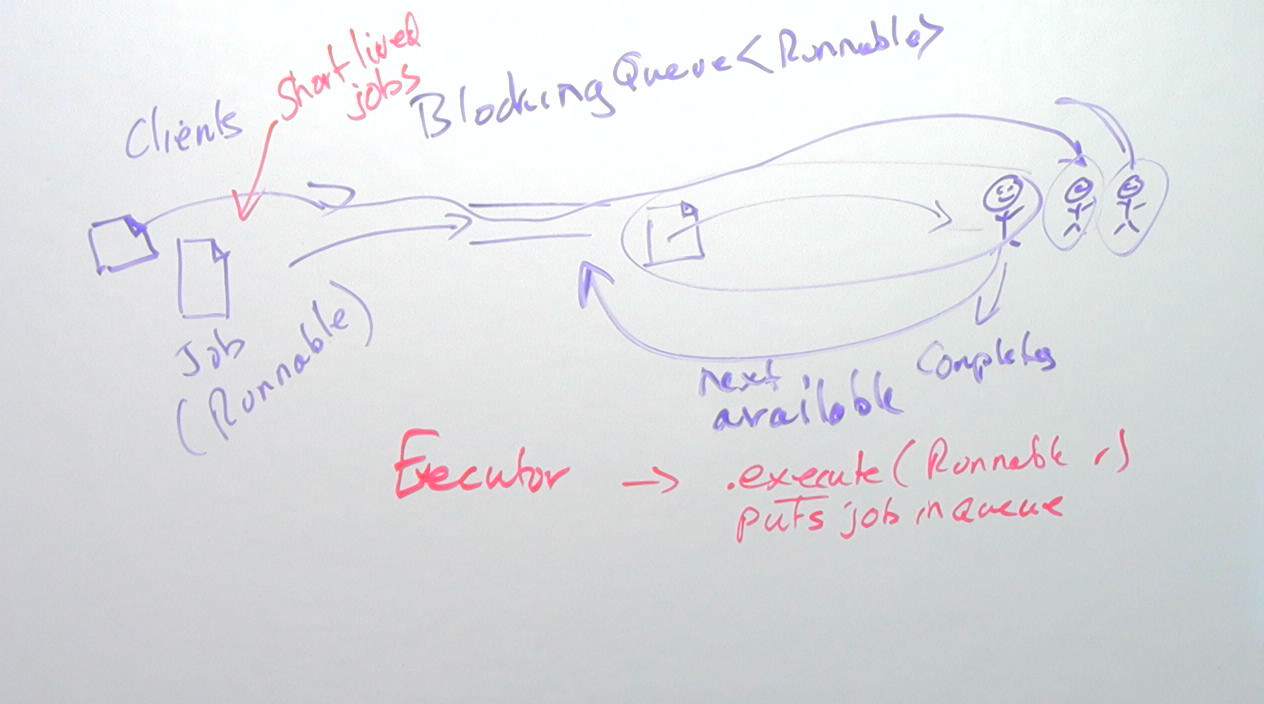 Short lived
jobs
BlockingQueue<Runnable>
Clients
Job
(Runnable)
next
available
Completes
Executor → .execute(Runnable r)
puts job in queue